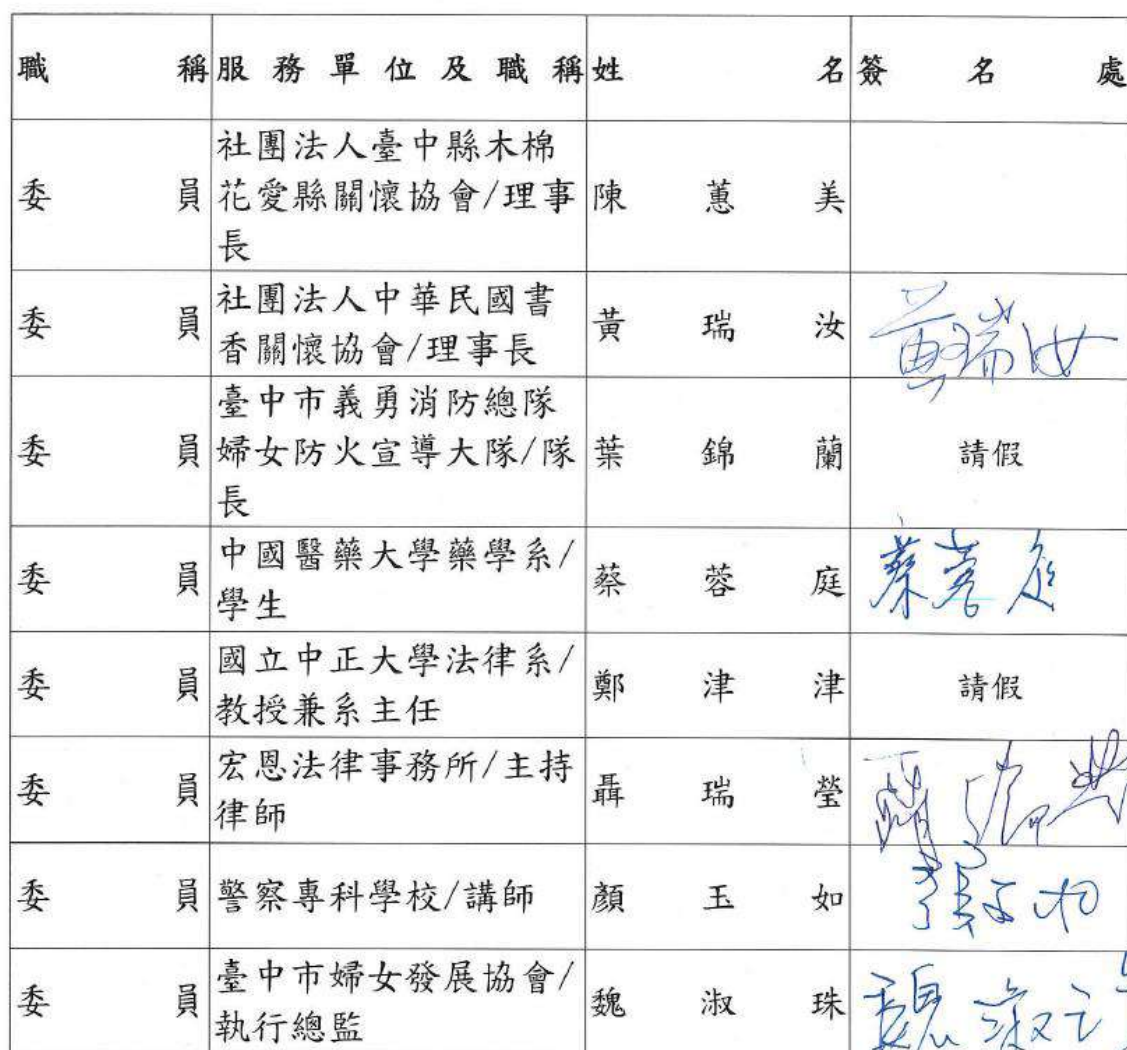 職稱 服務單位及職稱 姓名 簽名處
委員 社團法人臺中縣木棉
花愛縣關懷協會/理事
長 陳蕙美
委員 社團法人中華民國書
香關懷協會/理事長 黃瑞汝 黃瑞汝
委員 臺中市義勇消防總隊
婦女防火宣導大隊/隊
長 葉錦蘭 請假
委員 中國醫藥大學藥學系/
學生 蔡蓉庭 蔡蓉庭
委員 國立中正大學法律系/
教授兼系主任 鄭津津 請假
委員 宏恩法律事務所/主持
律師 聶瑞瑩
委員 警察專科學校/講師 顏玉如
委員 臺中市婦女發展協會/
執行總監 魏淑珠 魏淑